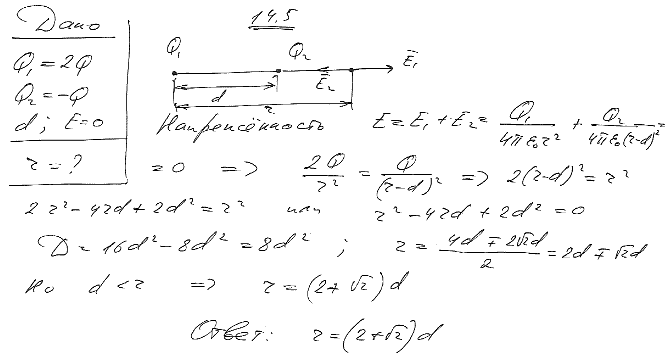 Дано
14.5
Q₁ = 2Q
Q₂ = -Q
d ; E = 0
r = ?
Q₁ Q₂ E₁
E₂
d
r
Напряжённость E = E₁ + E₂ = Q₁/(4πε₀r²) + Q₂/(4πε₀(r-d)²) =
= 0 => 2Q/r² = Q/(r-d)² => 2(r-d)² = r²
2r² - 4rd + 2d² = r² или r² - 4rd + 2d² = 0
D = 16d² - 8d² = 8d² ; r = (4d ∓ 2√2d)/2 = 2d ∓ √2d
Но d < r => r = (2+√2)d
Ответ: r = (2+√2)d